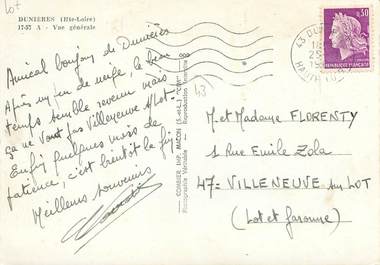 Lot
DUNIERES (Hte-Loire)
17-57 A - Vue générale
Amical bonjour de Dunières
Après un peu de neige, le beau
temps semble revenir mais
ça ne vaut pas Villeneuve s/Lot
Enfin quelques mois de
patience, c'est bientôt la fin
Meilleurs souvenirs
COMBIER IMP. MACON (S.-et-L.) "CIM"
Photographie Véritable - Reproduction Interdite
43
43 DUN
HAUTE
0,30
REPUBLIQUE FRANÇAISE
M. et Madame FLORENTY
1 Rue Emile Zola
47 = VILLENEUVE sur LOT
(Lot et Garonne)